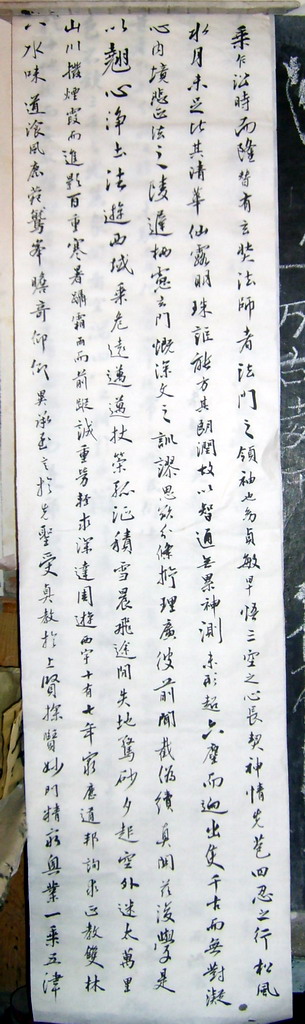 乘乍沿時而隆替有玄奘法師者法門之領袖也幼貞敏早悟三空之心長契神情先苞四忍之行松風
水月未足比其清華仙露明珠詎能方其朗潤故以智通無累神測未形超六塵而迥出隻千古而無對凝
心內境悲正法之陵遲栖慮玄門慨深文之訛謬思欲分條析理廣彼前聞截偽續真開茲後學是
以翹心淨土法遊西域乘危遠邁邁杖策孤征積雪晨飛途間失地驚砂夕起空外迷天萬里
山川撥煙霞而進影百重寒暑躡霜雨而前蹤誠重勞輕求深達周遊西宇十有七年窮歷道邦詢求正教雙林
八水味道飡風鹿菀鷲峯瞻奇仰仰異承至言於先聖受真教於上賢探賾妙門精窮奧業一乘五律